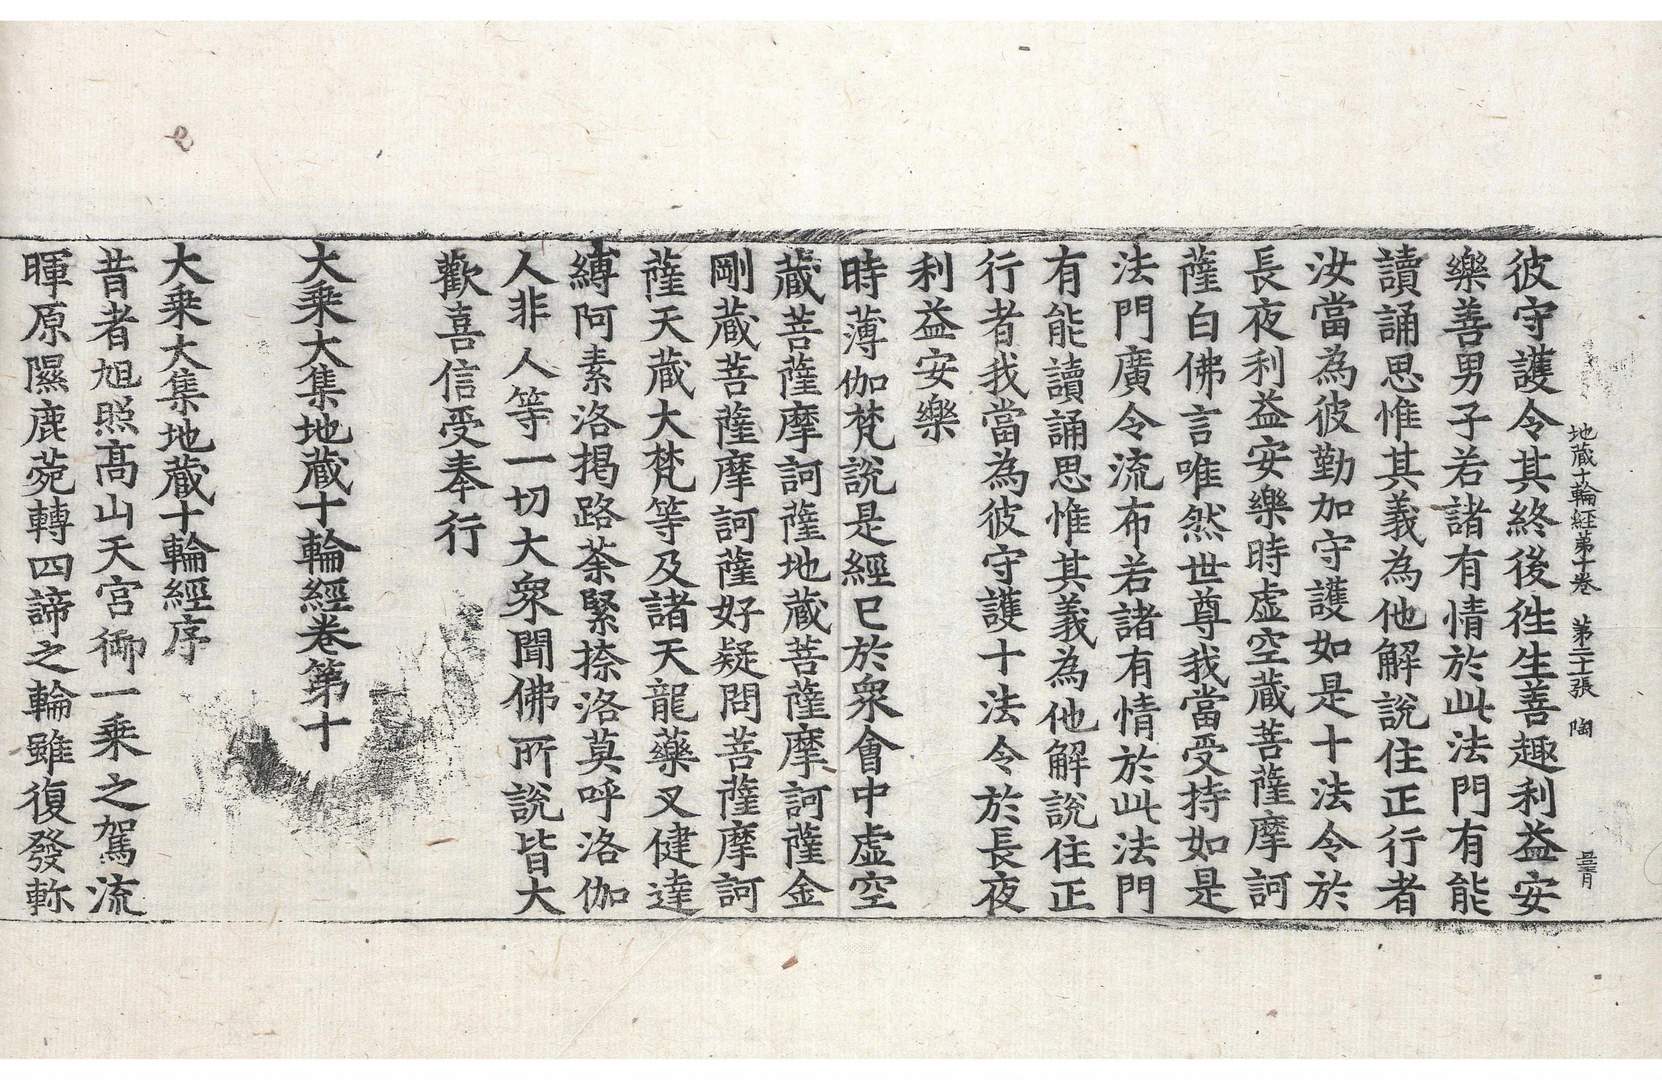 地藏十輪経第十卷 第二十張 陶
彼守護令其終後徃生善趣利益安
樂善男子若諸有情於此法門有能
讀誦思惟其義為他解說住正行者
汝當為彼勤加守護如是十法令於
長夜利益安樂時虛空藏菩薩摩訶
薩白佛言唯然世尊我當受持如是
法門廣令流布若諸有情於此法門
有能讀誦思惟其義為他解說住正
行者我當為彼守護十法令於長夜
利益安樂
時薄伽梵說是經已於衆會中虛空
藏菩薩摩訶薩地藏菩薩摩訶薩金
剛藏菩薩摩訶薩好疑問菩薩摩訶
薩天藏大梵等及諸天龍藥叉健達
縛阿素洛揭路荼緊捺洛莫呼洛伽
人非人等一切大衆聞佛所說皆大
歡喜信受奉行
大乘大集地藏十輪經卷第十
大乘大集地藏十輪經序
昔者旭照高山天宮御一乘之駕流
暉原隰鹿菀轉四諦之輪雖復發軫